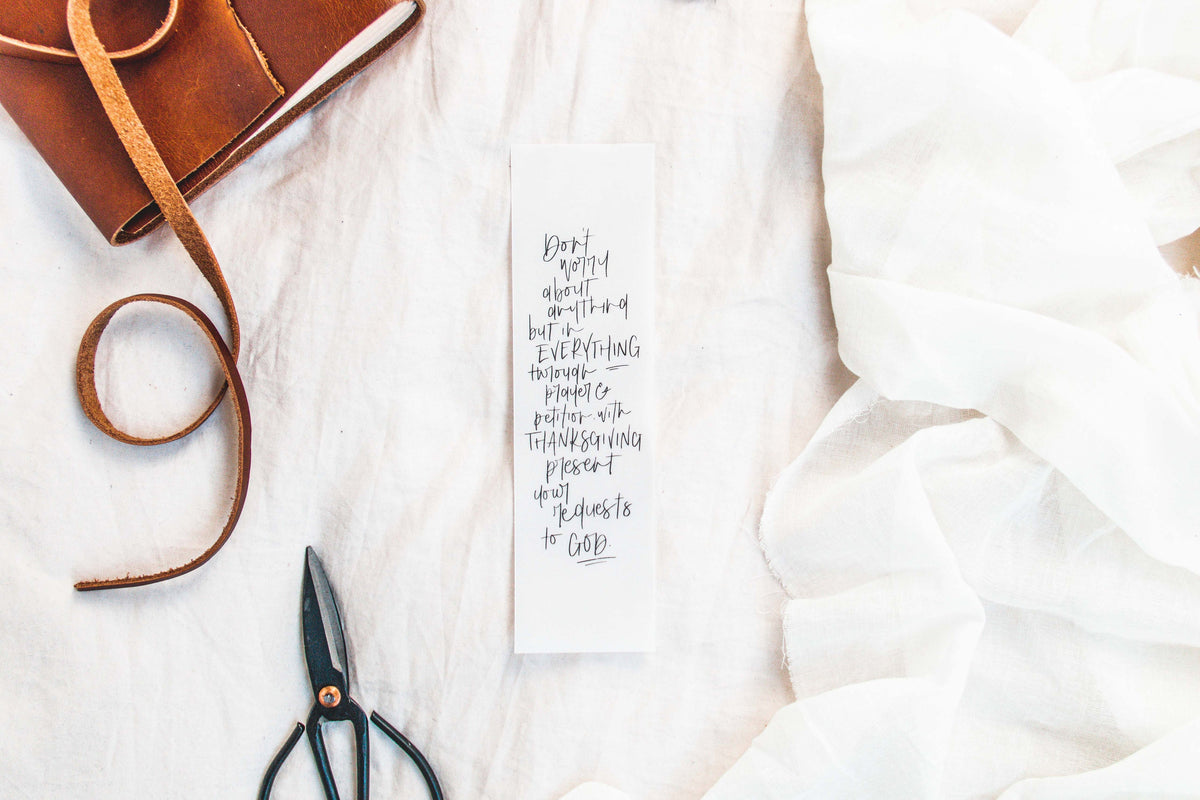 Don't
worry
about
anything
but in
EVERYTHING
through
prayer &
petition. with
THANKSGIVING
present
your
requests
to GOD.